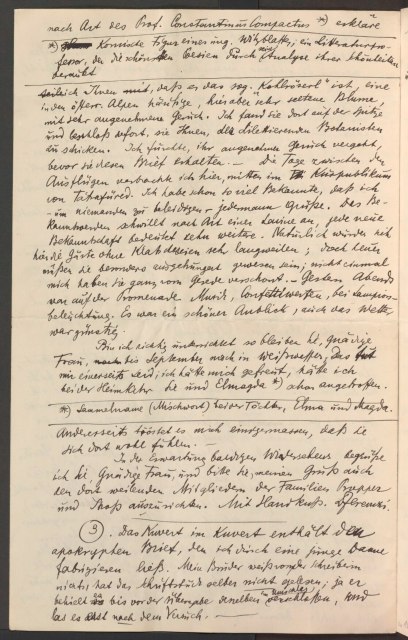 nach Art des Prof. Constantinus Compactus *) erkläre
*) Komische Figur eines ung. Witzblatts, ein Literaturpro-
fessor, der die schönsten Poesien durch Analyse ihrer Schönheiten
beraubt
teile ich Ihnen mit, daß es das sog. Kohlröserl ist, eine
in den österr. Alpen häufige, hier aber sehr seltene Blume,
mit sehr angenehmem Geruch. Ich fand sie dort auf der Spitze
und beschloß sofort, sie Ihnen, der dilettierenden Botanistin
zu schicken. Ich fürchte, ihr angenehmer Geruch vergeht,
bevor Sie diesen Brief erhalten. — Die Tage zwischen den
Ausflügen verbachte ich hier, mitten im Kurpublikum
von Tátrafüred. Ich habe schon so viel Bekannte, daß ich
– um niemanden zu beleidigen – jedermann grüße. Das Be-
kanntwerden schwillt nach Art einer Lawine an, jede neue
Bekanntschaft bedeutet zehn weitere. Natürlich würden sich
hier die Gäste ohne Klatschereien sehr langweilen; doch heuer
müssen sie besonders ausgehungert gewesen sein; nicht einmal
mich haben sie ganz vom Gerede verschont. – Gestern Abends
war auf der Promenade Musik, Confettiwerfen, bei Lampions-
beleuchtung. Es war ein schöner Anblick; auch das Wetter
war günstig.
Bin ich richtig unterrichtet so bleiben Sie, gnädige
Frau, bis September noch in Weißwasser; das tut
mir einerseits leid; ich hätte mich gefreut, hätte ich
bei der Heimkehr Sie und Elmagda *) schon angetroffen.
*) Sammelname (Mischwort) beider Töchter, Elma und Magda.
Andererseits tröstet es mich einigermassen, daß Sie
sich dort wohl fühlen.
In der Erwartung baldigen Wiedersehens begrüße
ich Sie Gnädige Frau, und bitte Sie, meinen Gruß auch
den dort weilenden Mitgliedern der Familien
und auszurichten. Mit Handkuß. Dr Ferenczi.
3. Das Kuvert im Kuvert enthält den
apokryphen Brief, den ich durch eine junge Dame
fabrizieren ließ. Mein Bruder weiß von dem Schreiben
nichts, hat das Schriftstück selber nicht gelesen; ja er
behielt es bis vor der Übergabe desselben im Umschlag verschlossen, und
las es erst nach dem Versuch. —